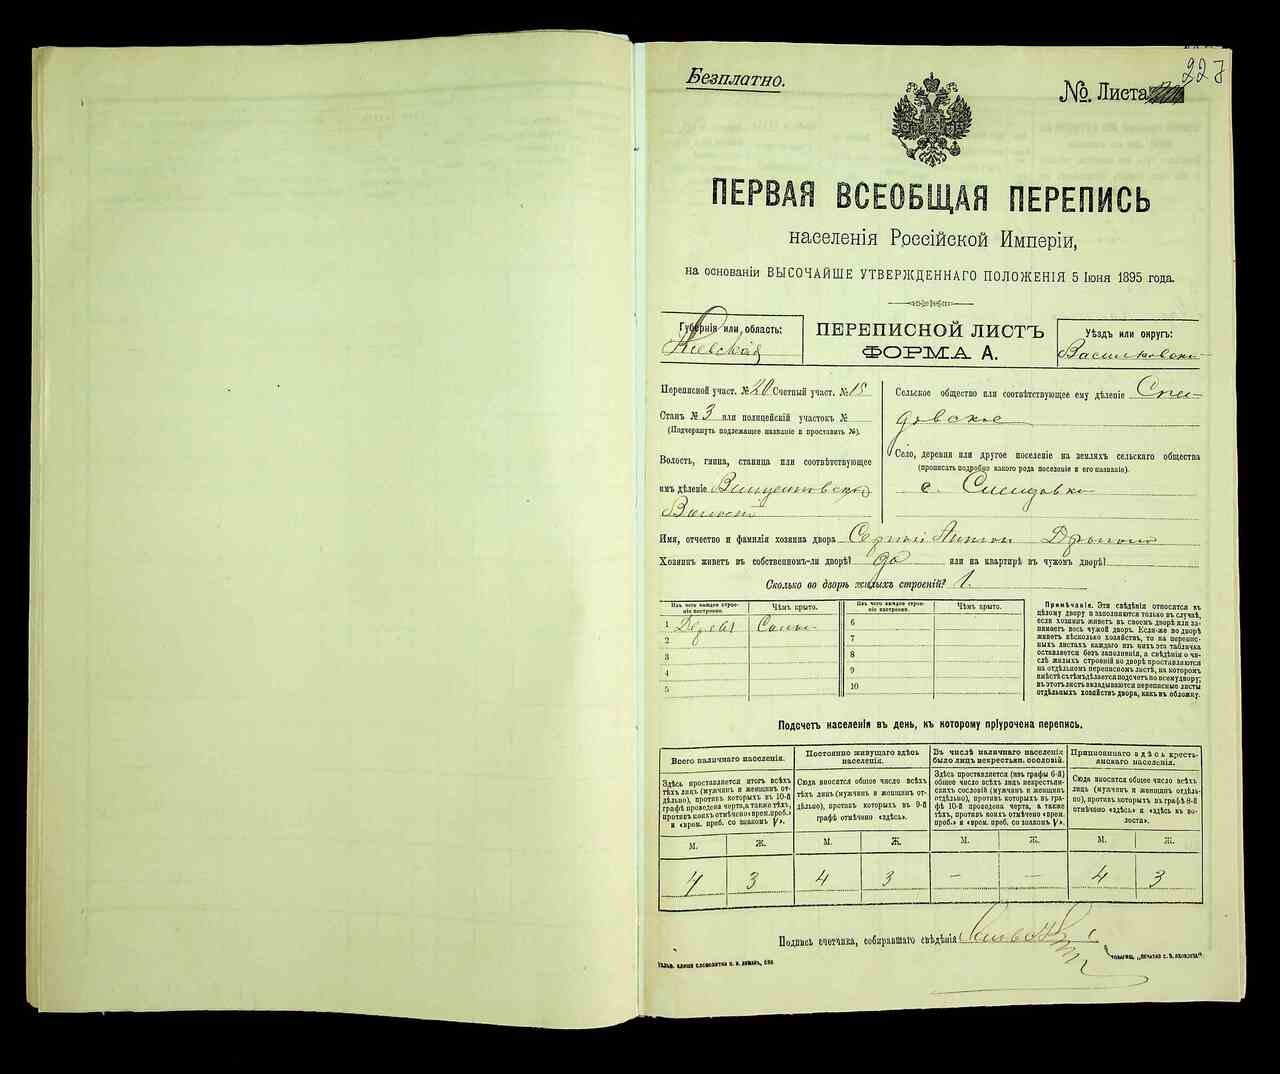 227
Безплатно.
№. Листа
ПЕРВАЯ ВСЕОБЩАЯ ПЕРЕПИСЬ
населенія Россійской Имперіи,
на основаніи ВЫСОЧАЙШЕ УТВЕРЖДЕННАГО ПОЛОЖЕНІЯ 5 Іюня 1895 года.
Губернія или область:
Кіевская
ПЕРЕПИСНОЙ ЛИСТЪ
ФОРМА А.
Уѣздъ или округъ:
Васильковскій
Переписной участ. № 20 Счетный участ. № 15
Станъ № 3 или полицейскій участокъ №
(Подчеркнуть подлежащее названіе и проставить №).
Волость, гмина, станица или соотвѣтствующее
имъ дѣленіе
Волость
Сельское общество или соотвѣтствующее ему дѣленіе
Село, деревня или другое поселеніе на земляхъ сельскаго общества
(прописать подробно какого рода поселеніе и его названіе).
с.
Имя, отчество и фамилія хозяина двора Сергій
Хозяинъ живетъ въ собственномъ-ли дворѣ? да или на квартирѣ въ чужомъ дворѣ?
Сколько во дворѣ жилыхъ строеній? 1.
Изъ чего каждое строеніе построено.
Чѣмъ крыто.
Изъ чего каждое строеніе построено.
Чѣмъ крыто.
1 6
2 7
3 8
4 9
5 10
Примѣчанія. Эти свѣдѣнія относятся къ
цѣлому двору и заполняются только въ случаѣ,
если хозяинъ живетъ въ своемъ дворѣ или занимаетъ
весь чужой дворъ. Если-же во дворѣ
живетъ нѣсколько хозяйствъ, то на переписныхъ
листахъ каждаго изъ нихъ эта табличка
оставляется безъ заполненія, а свѣдѣнія о числѣ
жилыхъ строеній во дворѣ проставляются
на отдѣльномъ переписномъ листѣ, на которомъ
вмѣстѣ съ тѣмъ дѣлается подсчетъ по всему двору;
въ этотъ листъ вкладываются переписные листы
отдѣльныхъ хозяйствъ двора, какъ въ обложку.
Подсчетъ населенія въ день, къ которому пріурочена перепись.
Всего наличнаго населенія.
Здѣсь проставляется итогъ всѣхъ
тѣхъ лицъ (мужчинъ и женщинъ отдѣльно),
противъ которыхъ въ 10-й
графѣ проведена черта, а также тѣхъ,
противъ коихъ отмѣчено «врем. преб.»
и «врем. преб. со знакомъ V».
Постоянно живущаго здѣсь
населенія.
Сюда вносится общее число всѣхъ
тѣхъ лицъ (мужчинъ и женщинъ отдѣльно),
противъ которыхъ въ 9-й
графѣ отмѣчено «здѣсь».
Въ числѣ наличнаго населенія
было лицъ некрестьян. сословій.
Здѣсь проставляется (изъ графы 6-й)
общее число всѣхъ лицъ некрестьянскихъ
сословій (мужчинъ и женщинъ
отдѣльно), противъ которыхъ въ графѣ
10-й проведена черта, а также
тѣхъ, противъ коихъ отмѣчено «врем.
преб.» и «врем. преб. со знакомъ V».
Приписаннаго здѣсь крестьянскаго
населенія.
Сюда вносится общее число всѣхъ
лицъ (мужчинъ и женщинъ отдѣльно),
противъ которыхъ въ графѣ 8-й
отмѣчено «здѣсь» и «здѣсь въ волости».
М. Ж. М. Ж. М. Ж. М. Ж.
4 3 4 3 – – 4 3
Подпись счетчика, собиравшаго свѣдѣнія